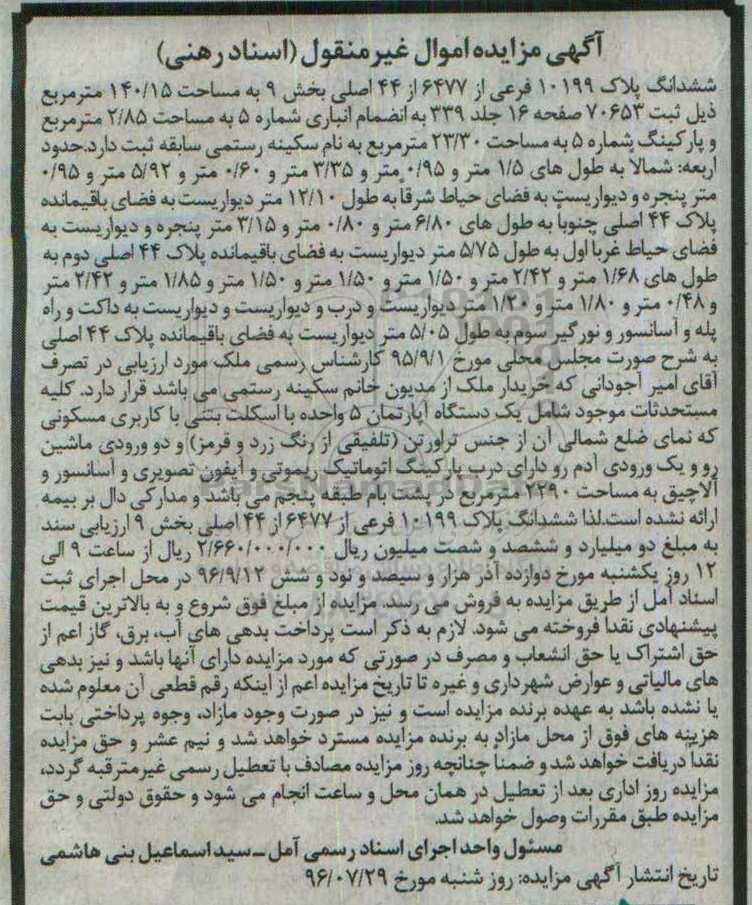 آگهی مزایده اموال غیر منقول (اسناد رهنی)
ششدانگ پلاک ۱۰۱۹۹ فرعی از ۶۴۷۷ از ۴۴ اصلی بخش ۹ به مساحت ۱۴۰/۱۵ مترمربع
ذیل ثبت ۷۰۶۵۳ صفحه ۱۶ جلد ۳۳۹ به انضمام انباری شماره ۵ به مساحت ۲/۸۵ مترمربع
و پارکینگ شماره ۵ به مساحت ۲۳/۳۰ مترمربع به نام سکینه رستمی سابقه ثبت دارد.حدود
اربعه: شمالا به طول های ۱/۵ متر و ۰/۹۵ متر و ۳/۳۵ متر و ۰/۶۰ متر و ۵/۹۲ متر و ۰/۹۵
متر پنجره و دیواریست به فضای حیاط شرقا به طول ۱۲/۱۰ متر دیواریست به فضای باقیمانده
پلاک ۴۴ اصلی جنوبا به طول های ۶/۸۰ متر و ۰/۸۰ متر و ۳/۱۵ متر پنجره و دیواریست به
فضای حیاط غربا اول به طول ۵/۷۵ متر دیواریست به فضای باقیمانده پلاک ۴۴ اصلی دوم به
طول های ۱/۶۸ متر و ۲/۴۲ متر و ۱/۵۰ متر و ۱/۵۰ متر و ۱/۵۰ متر و ۱/۸۵ متر و ۲/۴۲ متر
و ۰/۴۸ متر و ۱/۸۰ متر و ۱/۲۰ متر دیواریست و درب و دیواریست و دیواریست به داکت و راه
پله و آسانسور و نورگیر سوم به طول ۵/۰۵ متر دیواریست به فضای باقیمانده پلاک ۴۴ اصلی
به شرح صورت مجلس محلی مورخ ۹۵/۹/۱ کارشناس رسمی ملک مورد ارزیابی در تصرف
آقای امیر آجودانی که خریدار ملک از مدیون خانم سکینه رستمی می باشد قرار دارد. کلیه
مستحدثات موجود شامل یک دستگاه آپارتمان ۵ واحده با اسکلت بتنی با کاربری مسکونی
که نمای ضلع شمالی آن از جنس تراورتن (تلفیقی از رنگ زرد و قرمز) و دو ورودی ماشین
رو و یک ورودی آدم رو دارای درب پارکینگ اتوماتیک ریموتی و آیفون تصویری و آسانسور و
آلاچیق به مساحت ۲۲۹۰ مترمربع در پشت بام طبقه پنجم می باشد و مدارکی دال بر بیمه
ارائه نشده است.لذا ششدانگ پلاک ۱۰۱۹۹ فرعی از ۶۴۷۷ از ۴۴ اصلی بخش ۹ ارزیابی سند
به مبلغ دو میلیارد و ششصد و شصت میلیون ریال ۲/۶۶۰/۰۰۰/۰۰۰ ریال از ساعت ۹ الی
۱۲ روز یکشنبه مورخ دوازده آذر هزار و سیصد و نود و شش ۹۶/۹/۱۲ در محل اجرای ثبت
اسناد آمل از طریق مزایده به فروش می رسد. مزایده از مبلغ فوق شروع و به بالاترین قیمت
پیشنهادی نقدا فروخته می شود. لازم به ذکر است پرداخت بدهی های آب، برق، گاز اعم از
حق اشتراک یا حق انشعاب و مصرف در صورتی که مورد مزایده دارای آنها باشد و نیز بدهی
های مالیاتی و عوارض شهرداری و غیره تا تاریخ مزایده اعم از اینکه رقم قطعی آن معلوم شده
یا نشده باشد به عهده برنده مزایده است و نیز در صورت وجود مازاد، وجوه پرداختی بابت
هزینه های فوق از محل مازاد به برنده مزایده مسترد خواهد شد و نیم عشر و حق مزایده
نقدا دریافت خواهد شد و ضمنا چنانچه روز مزایده مصادف با تعطیل رسمی غیرمترقبه گردد،
مزایده روز اداری بعد از تعطیل در همان محل و ساعت انجام می شود و حقوق دولتی و حق
مزایده طبق مقررات وصول خواهد شد.
مسئول واحد اجرای اسناد رسمی آمل ـ سید اسماعیل بنی هاشمی
تاریخ انتشار آگهی مزایده: روز شنبه مورخ ۹۶/۰۷/۲۹